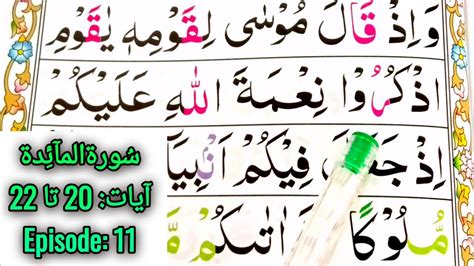 وَاِذْ قَالَ مُوْسٰى لِقَوْمِهٖ يٰقَوْمِ
اذْكُرُوْا نِعْمَةَ اللّٰهِ عَلَيْكُمْ
اِذْ فِيْكُمْ اَنْۢبِيَا
مُّلُوْكًا اٰتٰىكُمْ
سُورۃالمآئِدۃ
آیات: 20 تا 22
Episode: 11